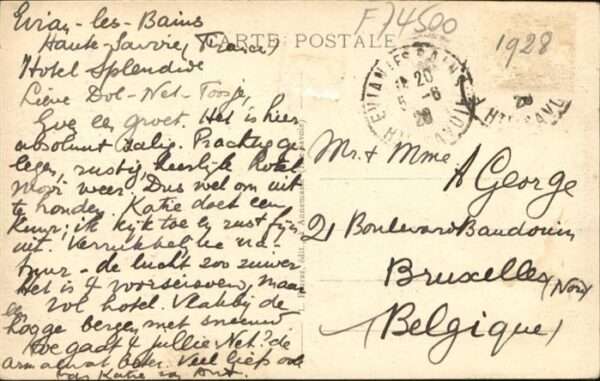 Evian-les-Bains
Haute Savoie, (France)
Hotel Splendide
Lieve Dol-Net-Toosje,
Eve een groet. Het is hier
absoluut zalig. Prachtig ge-
legen, rustig heerlijk hotel
mooi weer. Dus wel om uit
te houden. Katie doet een
kuur; ik kijk toe en rust fijn
uit. Verrukkelijke na-
tuur - de lucht zoo zuiver
Het is 't voorseizoen, maar
vol hotel. Vlakbij de
hooge bergen met sneeuw
Hoe gaat 't jullie Net? de
arm alwat beter. Veel liefs ook
van Katie
CARTE POSTALE
F 74500
1928
EVIAN LES BAINS
20
5-6
28
Mr. + Mme
A George
21 Boulevard Baudouin
Bruxelles (Nord)
(Belgique)